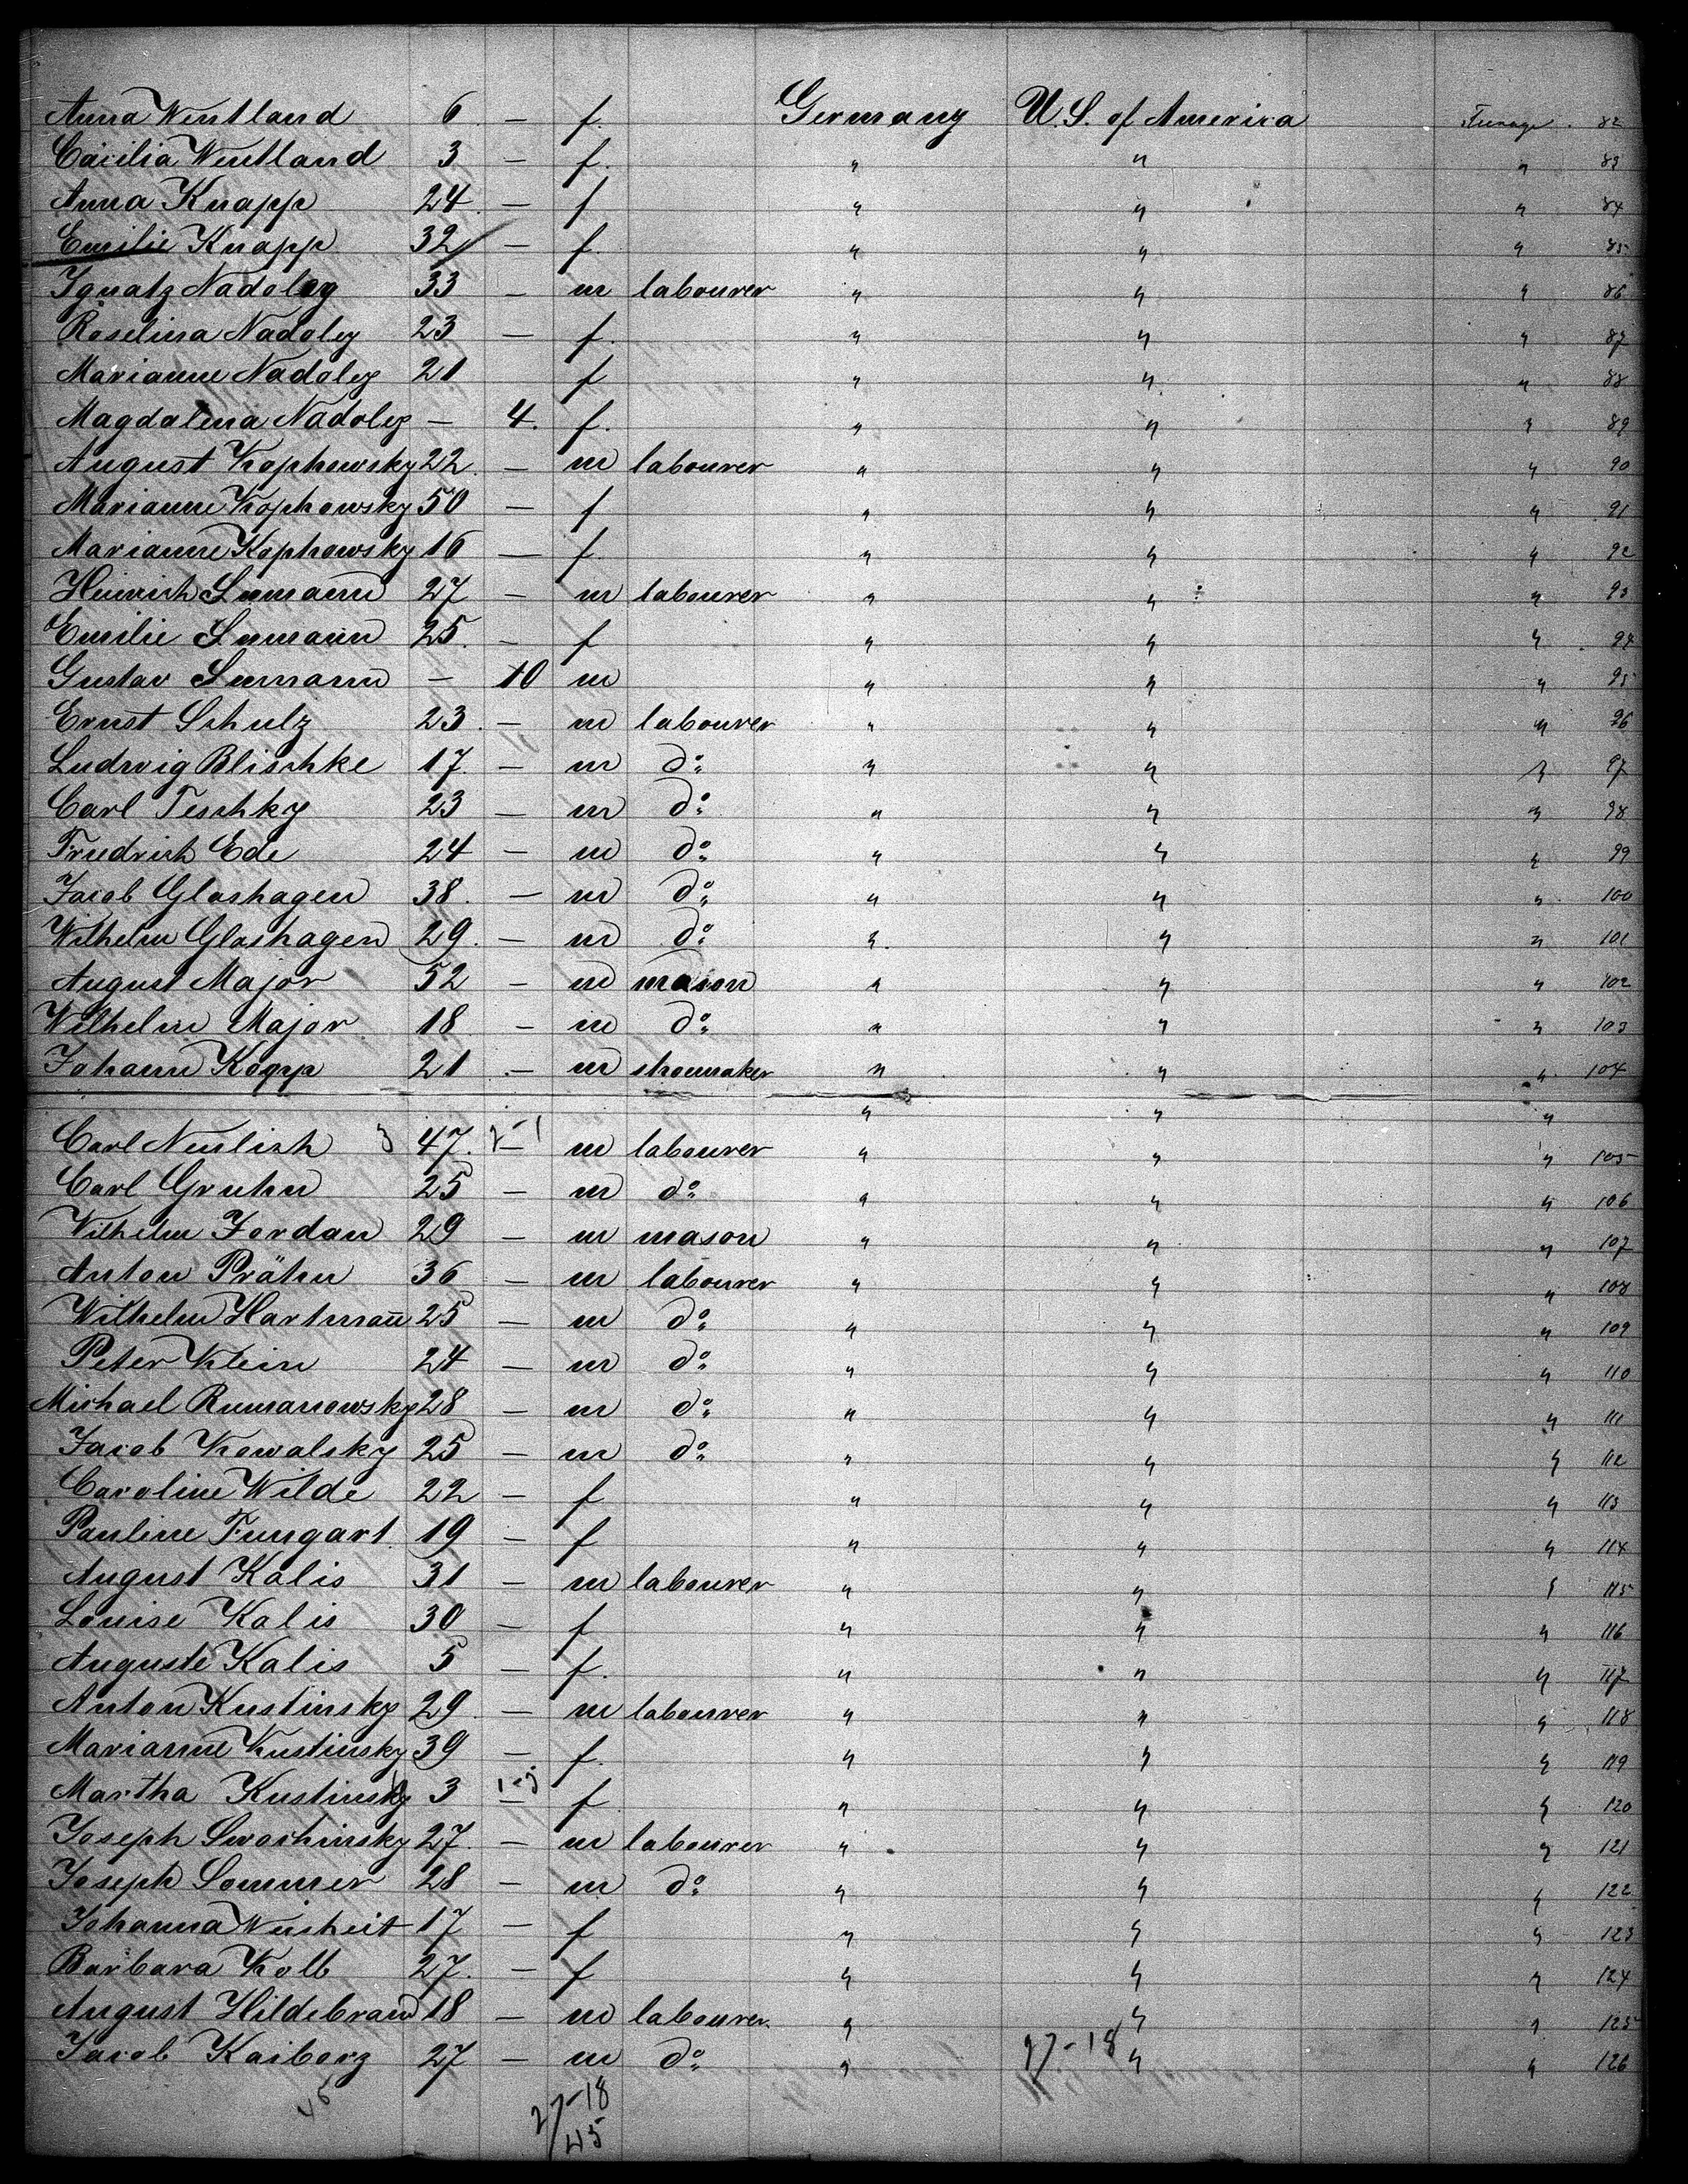 Anna Wentland 6 — f. Germany U.S. of America Steerage 82
Cäcilia Wentland 3 — f. " " " 83
Anna Knapp 24 — f " " " 84
Emilie Knapp 32 — f. " " " 85
Ignatz Nadoley 33 — m labourer " " " 86
Roselina Nadoley 23 — f. " " " 87
Marianne Nadoley 21 f " " " 88
Magdalena Nadoley — 4. f. " " " 89
August Kophowsky 22. — m labourer " " " 90
Marianne Kophowsky 50 — f " " " 91
Marianne Kophowsky 16 — f. " " " 92
Heinrich Lemann 27 — m labourer " " " 93
Emilie Lemann 25. — f " " " 94
Gustav Lemann — 10 m " " " 95
Ernst Schulz 23. — m labourer " " " 96
Ludwig Blischke 17. — m do " " " 97
Carl Teschky 23 — m do " " " 98
Friedrich Ede 24 — m do " " " 99
Jacob Glashagen 38. — m do " " " 100
Wilhelm Glashagen 29. — m do " " " 101
August Major 52 — m mason " " " 102
Wilhelm Major 18 — m do " " " 103
Johann Kopp 21 — m shoemaker " " " 104
" " "
Carl Neulish 3 47. 2-1 — m labourer " " " 105
Carl Gruhn 25 — m do " " " 106
Wilhelm Jordan 29 — m mason " " " 107
Anton Prähn 36 — m labourer " " " 108
Wilhelm Hartmann 25 — m do " " " 109
Peter Klein 24 — m do " " " 110
Michael Rumanowsky 28 — m do " " " 111
Jacob Kowalsky 25 — m do " " " 112
Caroline Wilde 22 — f " " " 113
Pauline Fungart 19 — f " " " 114
August Kalis 31 — m labourer " " " 115
Louise Kalis 30 — f " " " 116
Auguste Kalis 5 — f. " " " 117
Anton Kustinsky 29 — m labourer " " " 118
Marianne Kustinsky 39 — f. " " " 119
Martha Kustinsky 3 1-5 — f " " " 120
Joseph Swochinsky 27. — m labourer " " " 121
Joseph Sommer 28 — m do " " " 122
Johanna Weisheit 17 — f " " " 123
Barbara Kolb 27. — f " " " 124
August Hildebrand 18 — m labourer. " " " 125
Jacob Kaiborz 27 — m do " 27-18 " " 126
45 27-18
45